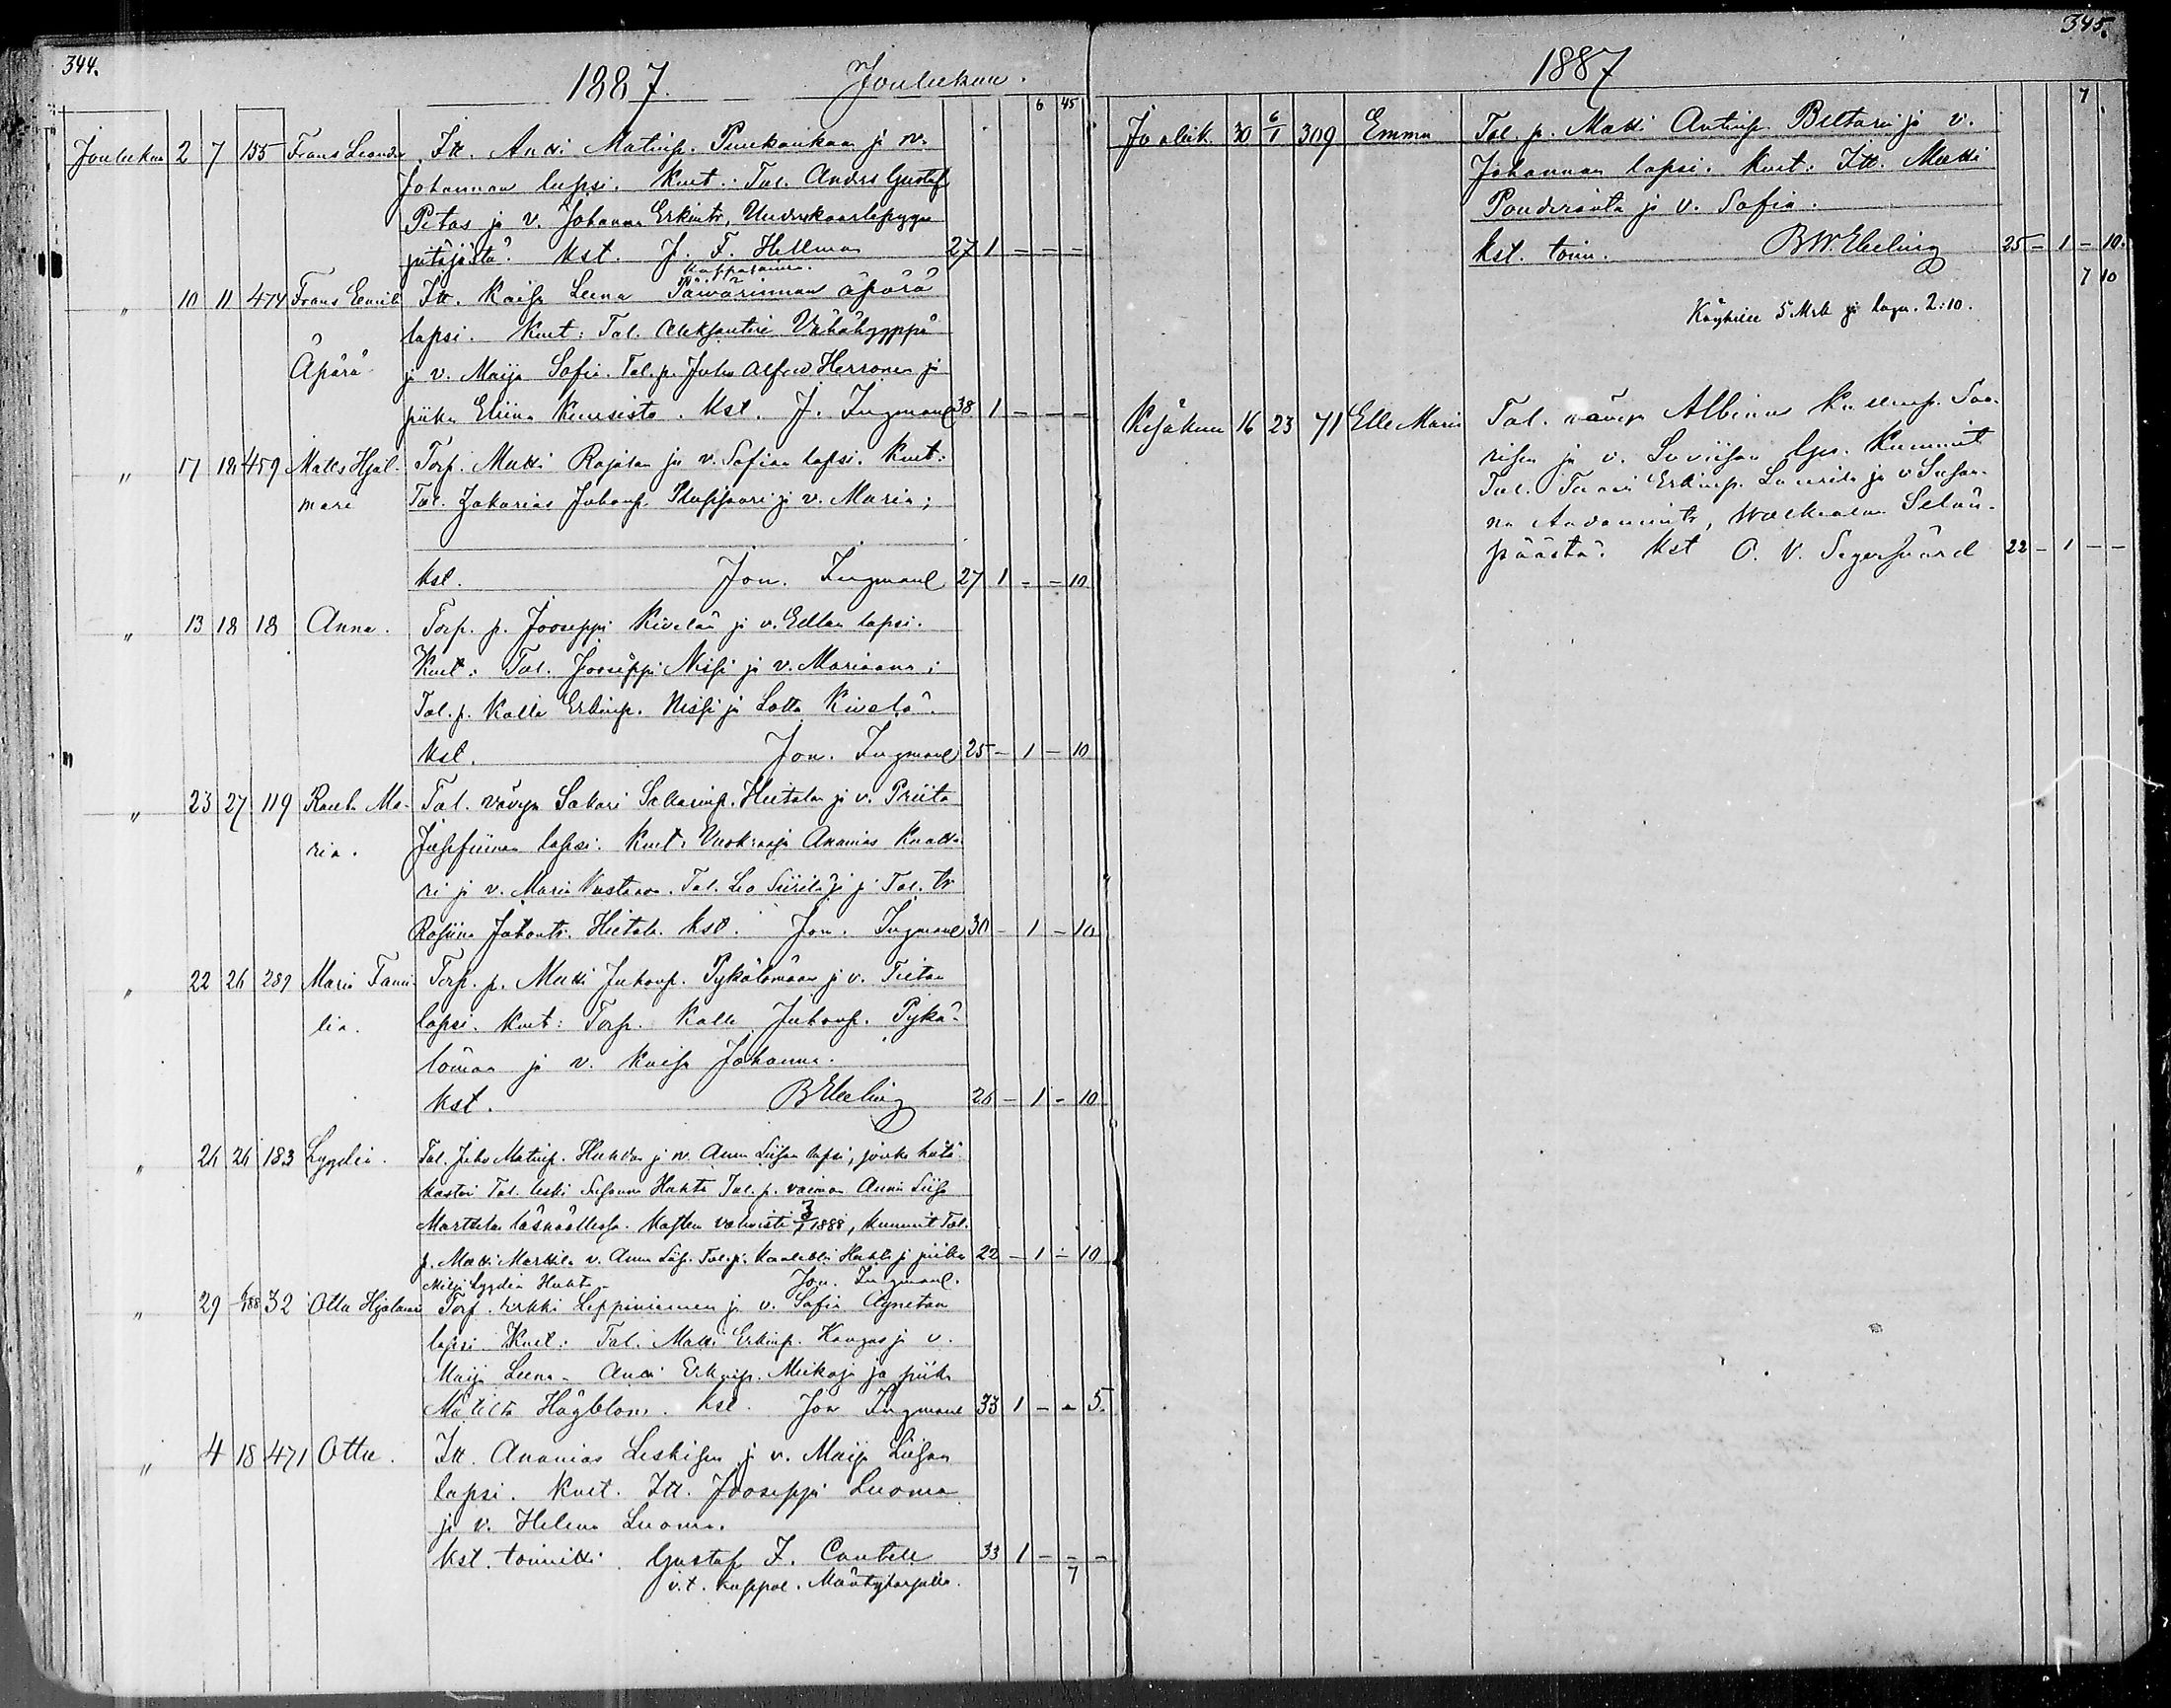 344.
1887. Joulukuu.
6 45
Joulukuu 2 7 155 Frans Leander Itt. Antti Matinp. ja v.
Johannan lapsi. Kmt. Tal. Anders Gustaf
Petas ja v. Johanna Erkintr,
pitäjästä. Kst. J. F. Hellman 27 1 - - -
Kappalainen.
" 10 11 474 Frans Emil Itt. Kaisa Leena Päivärinnan äpärä
lapsi. Kmt: Tal. Aleksanteri Vähähyyppä
Äpärä ja v. Maija Sofia. Tal. p. Juho Alfred Herronen ja
piika Eliina Kuusisto. Kst. J. Ingman 38 1 - - -
" 17 18 459 Matts Hjal- Torp. Matti Rajalan ja v. Sofian lapsi. Kmt:
mari Tal. Zakarias Juhonp. ja v. Maria;
Kst. Jon. Ingman 27 1 - - 10
" 13 18 18 Anna. Torp. p. Jooseppi Kivelän ja v. Edlan lapsi.
Kmt: Tal. Jooseppi Nissi ja v. Mariaana;
Tal. p. Kalle Erkinp. Nissi ja Lotta Kivelä.
Kst. Jon. Ingman 25 - 1 - 10
" 23 27 119 Rauha Ma- Tal. vävyn Sakari Sakarinp. Hietalan ja v. Priita
ria. Josefiinan lapsi. Kmt. Vuokraaja Ananias
ri ja v. Maria Kustaava. Tal. Leo Siirilä ja Tal. tr
Rosiina Juhontr. Hietala. Kst. Jon. Ingman 30 - 1 - 10
" 22 26 289 Maria Fanni- Torp. p. Matti Juhonp. Pykälämään ja v. Fiinan
lia. lapsi. Kmt: Torp. Kalle Juhonp. Pykä-
lämaa ja v. Kaisa Johanna.
Kst. B Ebeling 26 - 1 - 10
" 24 26 183 Lyydia. Tal. Juho Matinp. Huhdan ja v. Anna Liisan lapsi, jonka hätä-
kastoi Tal. leski Susanna Huhta Tal. p. vaimon Anna Liisa
Marttilan läsnäollessa. Kasteen vahvisti 3/1 1888, kummit Tal.
p. Matti Marttila v. Anna Liisa. Tal. p. Kaaleppi Huhta ja piika 22 - 1 - 10
Milja Lyydia Huhta. Jon. Ingman.
" 29 88 32 Otto Hjalmari Torp. Erkki Leppiniemen ja v. Sofia Agnetan
lapsi. Kmt: Tal. Matti Erkinp. Kangas ja v.
Maija Leena. Antti Erkinp. Mickaja ja piika
Matilta Högblom. Kst. Jon Ingman 33 1 - - 5.
" 4 18 471 Otto. Itt. Ananias Leskisen ja v. Maija Liisan
lapsi. Kmt. Itt. Jooseppi Luoma
ja v. Helena Luoma.
Kst. toimitti. Gustaf F. Cantell 33 1 - - -
v.t. kappal. Mäntyharjulla. 7
345.
1887
7
Jouluk. 30 6/1 309 Emma Tal. p. Matti Antinp. Beltarin ja v.
Johannan lapsi. Kmt: Itt. Matti
ja v. Sofia.
Kst. toim. B W. Ebeling 25 - 1 - 10.
7 10
Köyhille 5 Mrk ja 2:10.
Kesäkuu 16 23 71 Elle Maria Tal. vävyn Albinus Kustaanp. Saa-
risen ja v. Loviisan lps. Kummit
Tal. Tuomas Erkinp. Laurila ja v Susan-
na Aadamintr, Wälkealan Selän-
päästä. Kst O. V. Segersvärd 22 - 1 - -